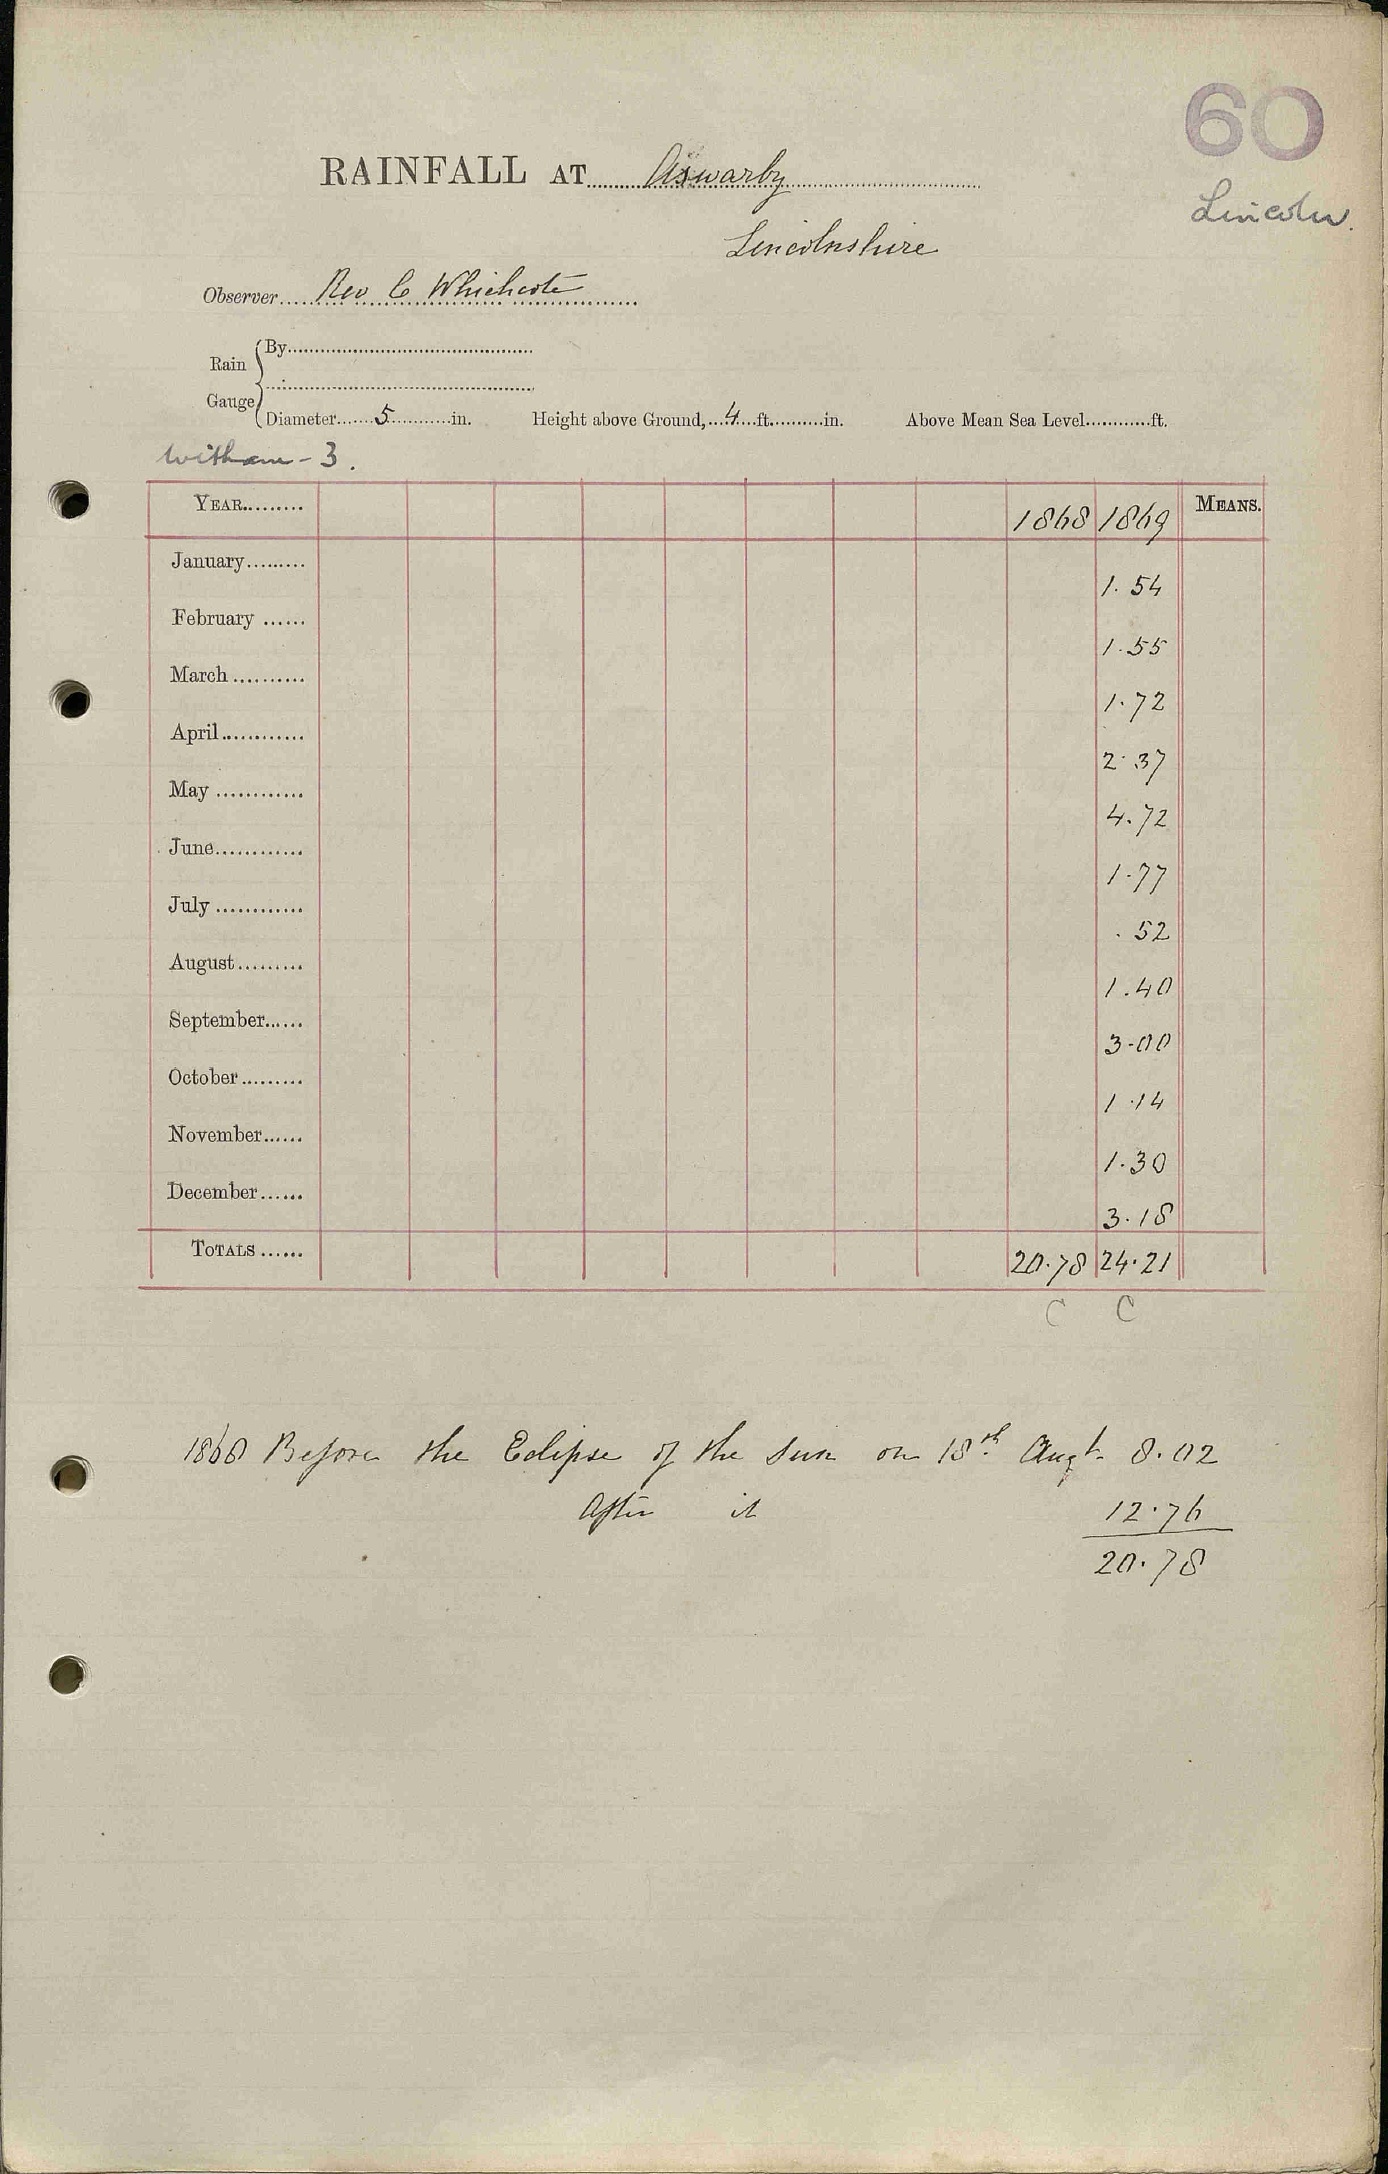 60
RAINFALL AT Aswarby
Lincoln.
Lincolnshire
Observer Rev C Whichcote
By
Rain
Gauge
Diameter 5 in. Height above Ground, 4 ft. in. Above Mean Sea Level ft.
Witham - 3.
YEAR 1868 1869 MEANS.
January 1.54
February 1.55
March 1.72
April 2.37
May 4.72
June 1.77
July .52
August 1.40
September 3.00
October 1.14
November 1.30
December 3.18
TOTALS 20.78 24.21
C C
1868 Before the Eclipse of the Sun on 18th Augt. 8.02
After it 12.76
20.78